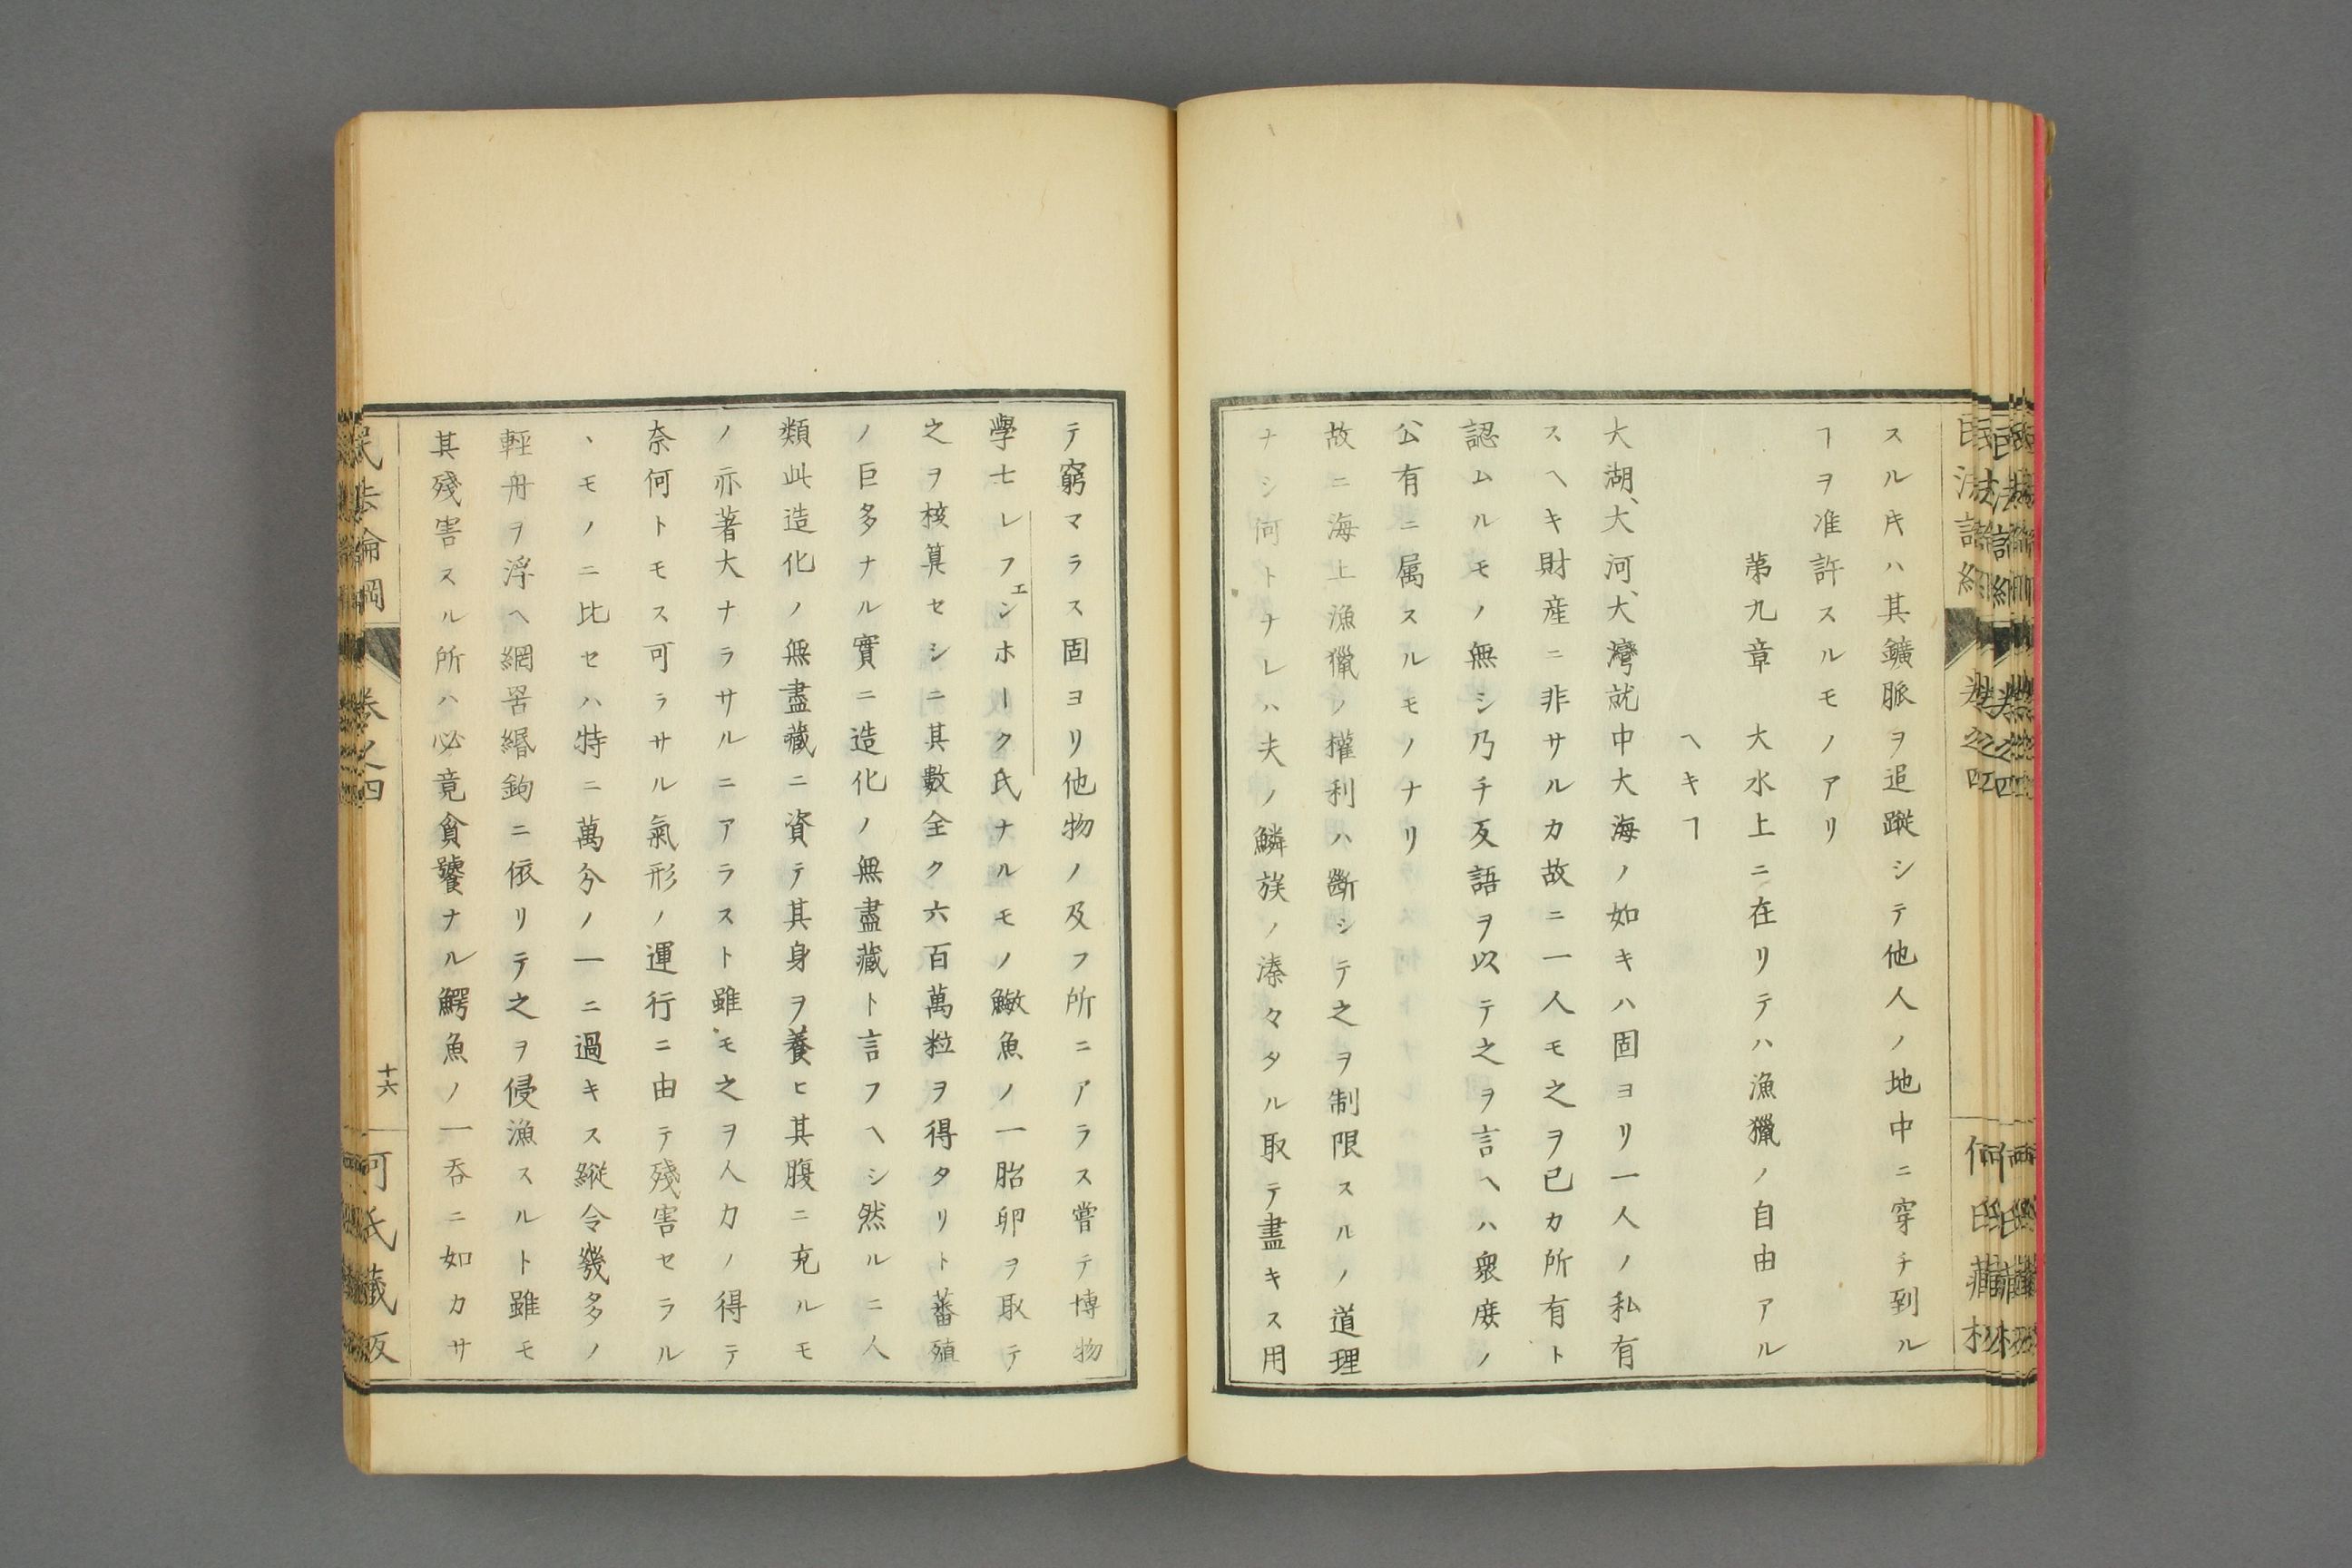 スル𪜈ハ其鑛脈ヲ追蹤シテ他人ノ地中ニ穿チ到ル
ヿヲ准許スルモノアリ
第九章　大水上ニ在リテハ漁獵ノ自由アル
ヘキヿ
大湖、大河、大灣就中大海ノ如キハ固ヨリ一人ノ私有
スヘキ財産ニ非サルカ故ニ一人モ之ヲ已カ所有ト
認ムルモノ無シ乃チ反語ヲ以テ之ヲ言ヘハ衆庻ノ
公有ニ属スルモノナリ
故ニ海上漁獵ノ權利ハ斷シテ之ヲ制限スルノ道理
ナシ何トナレハ夫ノ鱗族ノ溱々タル取テ盡キス用
テ窮マラス固ヨリ他物ノ及フ所ニアラス嘗テ博物
學士レフェンホーク氏ナルモノ鰵魚ノ一胎卵ヲ取テ
之ヲ核算セシニ其數全ク六百萬粒ヲ得タリト蕃殖
ノ巨多ナル實ニ造化ノ無盡藏ト言フヘシ然ルニ人
類此造化ノ無盡藏ニ資テ其身ヲ養ヒ其腹ニ充ルモ
ノ亦著大ナラサルニアラスト雖モ之ヲ人力ノ得テ
奈何トモス可ラサル氣形ノ運行ニ由テ殘害セラル
ヽモノニ比セハ特ニ萬分ノ一ニ過キス縱令幾多ノ
輕舟ヲ浮ヘ網罟緡鉤ニ依リテ之ヲ侵漁スルト雖モ
其殘害スル所ハ必竟貪饕ナル鰐魚ノ一呑ニ如カサ
民法論綱
卷之四
十六
何氏藏版